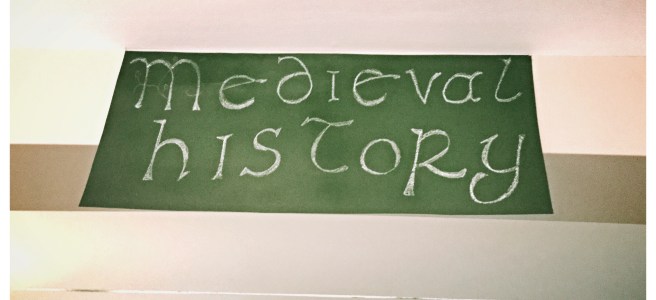 Medieval
hISTORy